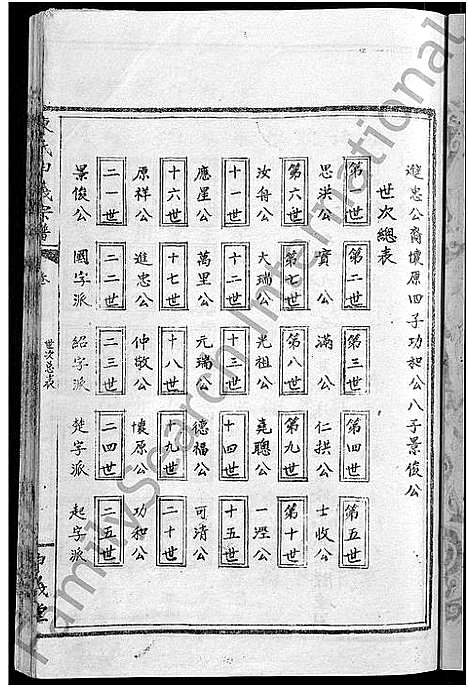 進忠公裔懷原四子功和公八子景俊公
世次總表
第一世 第二世 第三世 第四世 第五世
思洪公 實公 滿公 仁拱公 士收公
第六世 第七世 第八世 第九世 第十世
汝舟公 大瑞公 光祖公 堯聰公 一溼公
十一世 十二世 十三世 十四世 十五世
應星公 萬里公 元瑞公 德福公 可清公
十六世 十七世 十八世 十九世 二十世
原祥公 進忠公 仲敬公 懷原公 功和公
二一世 二二世 二三世 二四世 二五世
景俊公 國字派 紹字派 楚字派 起字派
陳氏由義宗譜
卷
世次总表
由義堂
FamilySearch International